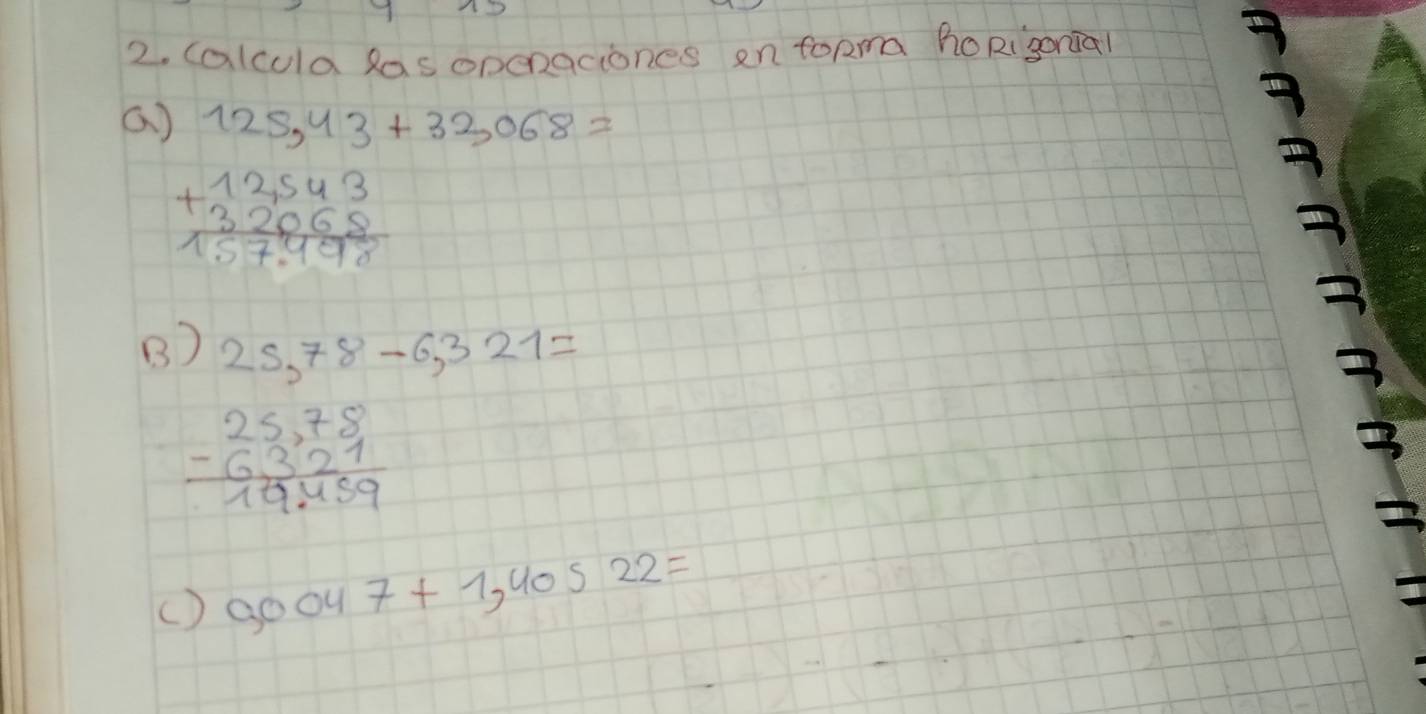 2. Calcula las operaciones en forma horizontal
a) 125,43 + 32,068 =
+ 12,543
32068
157.498
B) 25,78 - 6,321 =
25,78
- 6321
19.459
c) 0,0047 + 1,40522 =